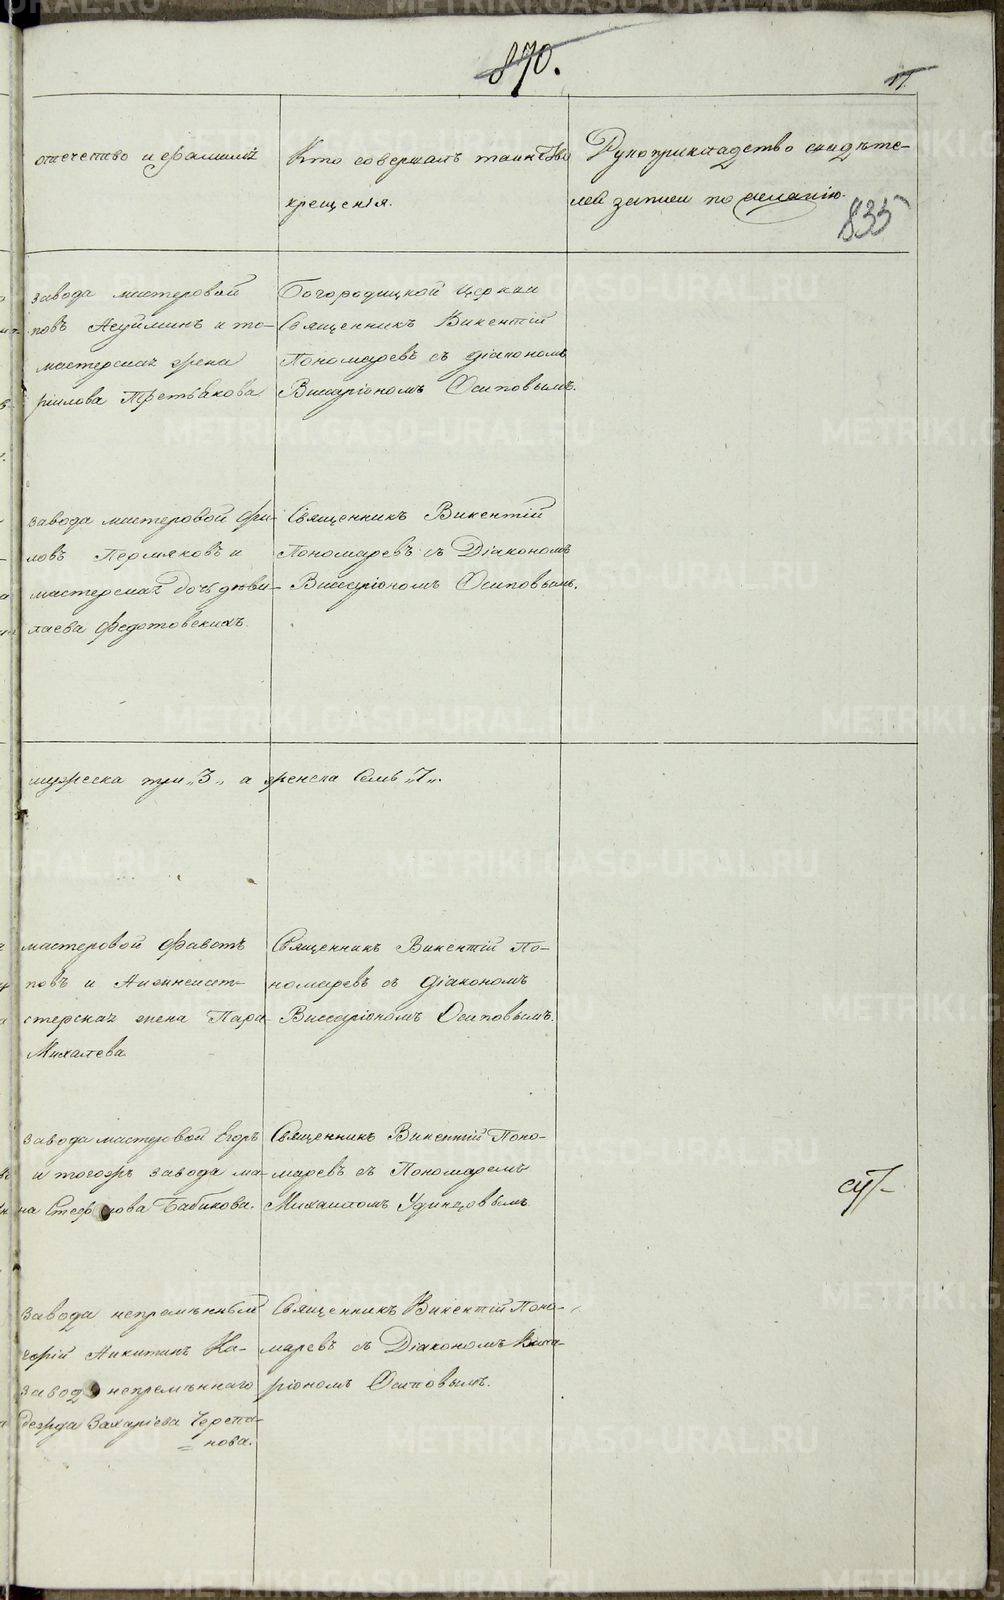 870.
17.
отечество и фамилія
Кто совершалъ таинство
крещенія.
Рукоприкладство свидѣте-
лей записи по желанію.
835
завода мастеровой
повъ и то-
мастерская жена
Третьякова
Богородицкой церкви
Священникъ Викентій
Пономаревъ съ діакономъ
Виссаріономъ Осиповымъ.
завода мастеровой
ловъ Пермяковъ и
мастерская дочь дѣви-
лаева Федотовскихъ.
Священникъ Викентій
Пономаревъ съ Діакономъ
Виссаріономъ Осиповымъ.
мужеска три „3„ а женска семь „7„.
мастеровой
повъ и
стерская жена Пара-
Михалева
Священникъ Викентій По-
номаревъ съ діакономъ
Виссаріономъ Осиповымъ.
завода мастеровой Егоръ
и тогожъ завода ма-
Бабикова.
Священникъ Викентій Поно-
маревъ съ Пономаремъ
Михаиломъ Удинцовымъ
завода непремѣнный
Никитинъ Ка-
завода непремѣннаго
Захаріева Черепа-
нова.
Священникъ Викентій Поно-
маревъ съ Діакономъ Висса-
ріономъ Осиповымъ.
METRIKI.GASO-URAL.RU